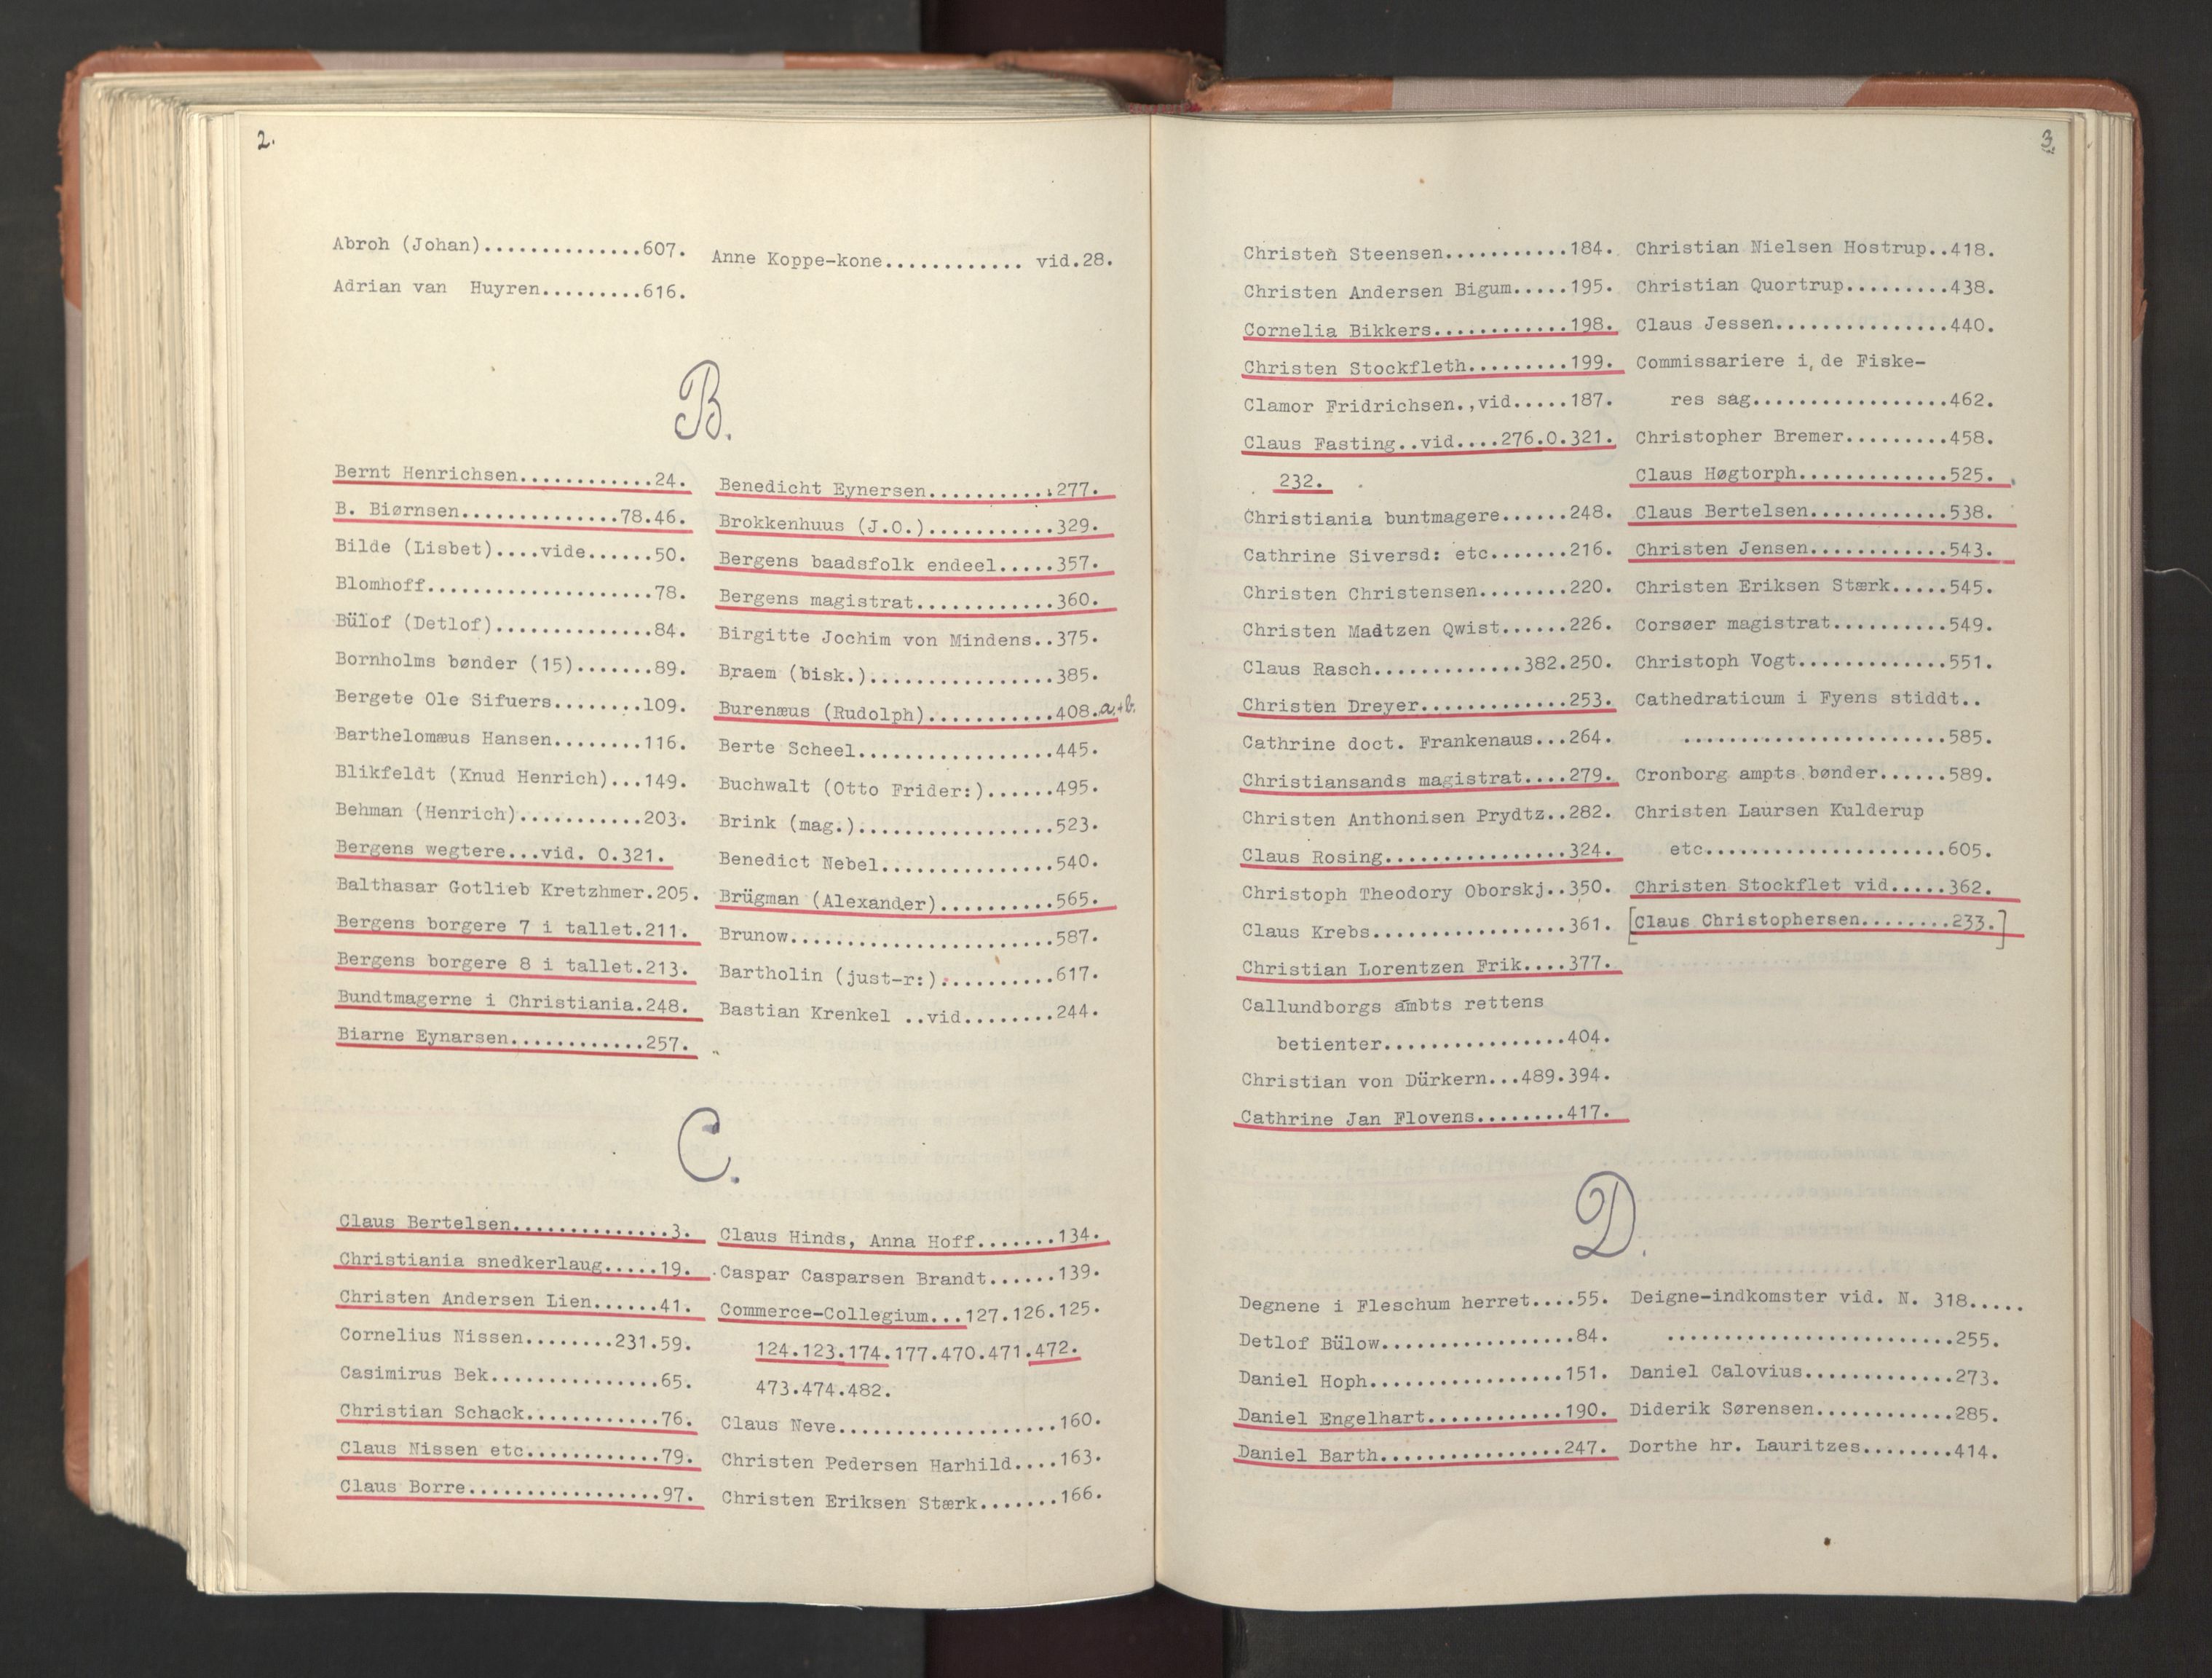 2.
Abroh (Johan)..............607.
Adrian van  Huyren.........616.
Anne Koppe-kone............ vid.28.
B.
Bernt Henrichsen............24.
B. Biørnsen..............78.46.
Bilde (Lisbet)....vide......50.
Blomhoff....................78.
Bülof (Detlof)..............84.
Bornholms bønder (15).......89.
Bergete Ole Sifuers........109.
Barthelomæus Hansen........116.
Blikfeldt (Knud Henrich)...149.
Behman (Henrich)...........203.
Bergens wegtere...vid. O.321.
Balthasar Gotlieb Kretzhmer.205.
Bergens borgere 7 i tallet.211.
Bergens borgere 8 i tallet.213.
Bundtmagerne i Christiania.248.
Biarne Eynarsen............257.
Benedicht Eynersen...........277.
Brokkenhuus (J.O.)...........329.
Bergens baadsfolk endeel.....357.
Bergens magistrat............360.
Birgitte Jochim von Mindens..375.
Braem (bisk.).................385.
Burenæus (Rudolph)...........408.a.+b.
Berte Scheel..................445.
Buchwalt (Otto Frider:)......495.
Brink (mag.)..................523.
Benedict Nebel................540.
Brügman (Alexander)..........565.
Brunow........................587.
Bartholin (just-r:)..........617.
Bastian Krenkel ..vid........244.
C.
Claus Bertelsen..............3.
Christiania snedkerlaug.....19.
Christen Andersen Lien......41.
Cornelius Nissen........231.59.
Casimirus Bek...............65.
Christian Schack............76.
Claus Nissen etc............79.
Claus Borre.................97.
Claus Hinds, Anna Hoff.......134.
Caspar Casparsen Brandt......139.
Commerce-Collegium...127.126.125.
124.123.174.177.470.471.472.
473.474.482.
Claus Neve...................160.
Christen Pedersen Harhild....163.
Christen Eriksen Stærk.......166.
3.
Christen Steensen...........184.
Christen Andersen Bigum.....195.
Cornelia Bikkers............198.
Christen Stockfleth.........199.
Clamor Fridrichsen.,vid.....187.
Claus Fasting..vid....276.O.321.
232.
Christiania buntmagere......248.
Cathrine Siversd: etc.......216.
Christen Christensen........220.
Christen Madtzen Qwist......226.
Claus Rasch.............382.250.
Christen Dreyer.............253.
Cathrine doct. Frankenaus...264.
Christiansands magistrat....279.
Christen Anthonisen Prydtz..282.
Claus Rosing................324.
Christoph Theodory Oborskj..350.
Claus Krebs.................361.
Christian Lorentzen Frik....377.
Callundborgs ambts rettens
betienter................404.
Christian von Dürkern...489.394.
Cathrine Jan Flovens........417.
Christian Nielsen Hostrup..418.
Christian Quortrup.........438.
Claus Jessen...............440.
Commissariere i, de Fiske-
res sag.................462.
Christopher Bremer.........458.
Claus Høgtorph.............525.
Claus Bertelsen............538.
Christen Jensen............543.
Christen Eriksen Stærk.....545.
Corsøer magistrat..........549.
Christoph Vogt.............551.
Cathedraticum i Fyens stiddt..
.......................585.
Cronborg ampts bønder......589.
Christen Laursen Kulderup
etc.....................605.
Christen Stockflet vid.....362.
[Claus Christophersen........233.]
D.
Degnene i Fleschum herret....55.
Detlof Bülow.................84.
Daniel Hoph.................151.
Daniel Engelhart............190.
Daniel Barth................247.
Deigne-indkomster vid. N. 318.....
.........................255.
Daniel Calovius.............273.
Diderik Sørensen............285.
Dorthe hr. Lauritzes........414.